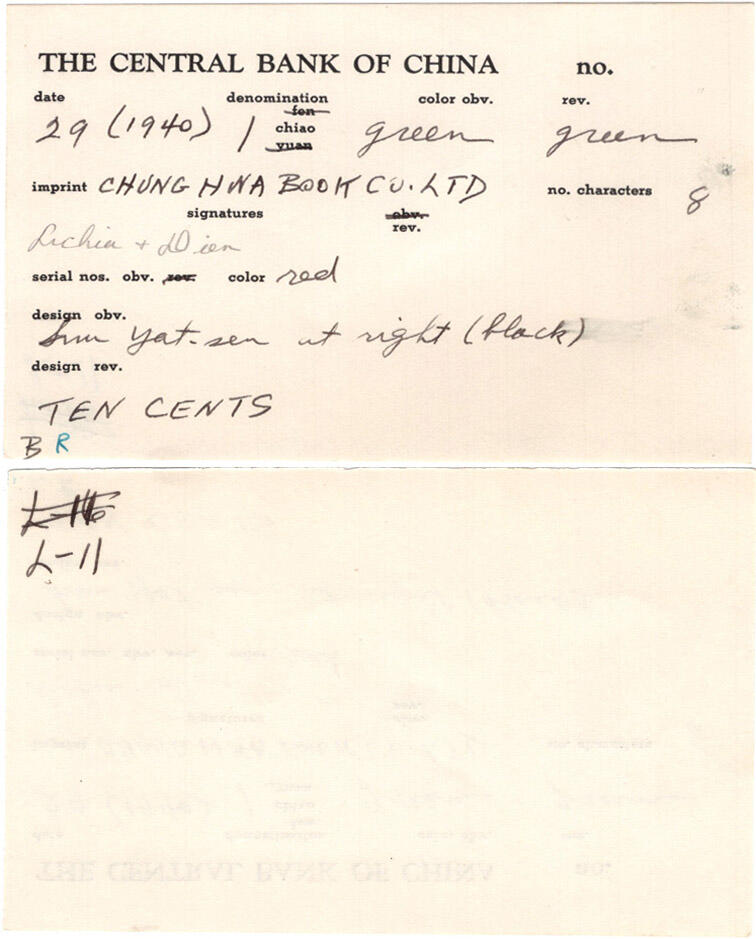 THE CENTRAL BANK OF CHINA no.
date denomination color obv. rev.
fen
29 (1940) 1 chiao green green
yuan
imprint CHUNG HWA BOOK CO. LTD no. characters 8
signatures obv.
rev.
serial nos. obv. rev. color red
design obv.
Sun Yat-sen at right (black)
design rev.
TEN CENTS
B R
L-11